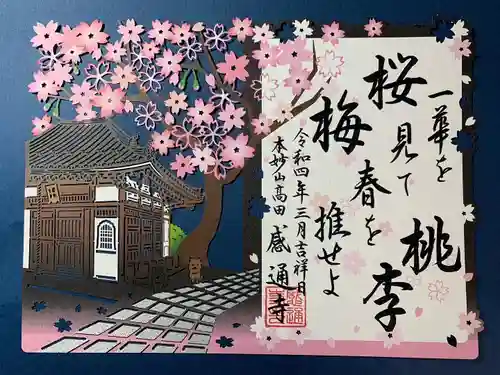 一華を
見て
春を
推せよ
桜
梅
桃
李
令和四年三月吉祥日
本妙山高田感通寺